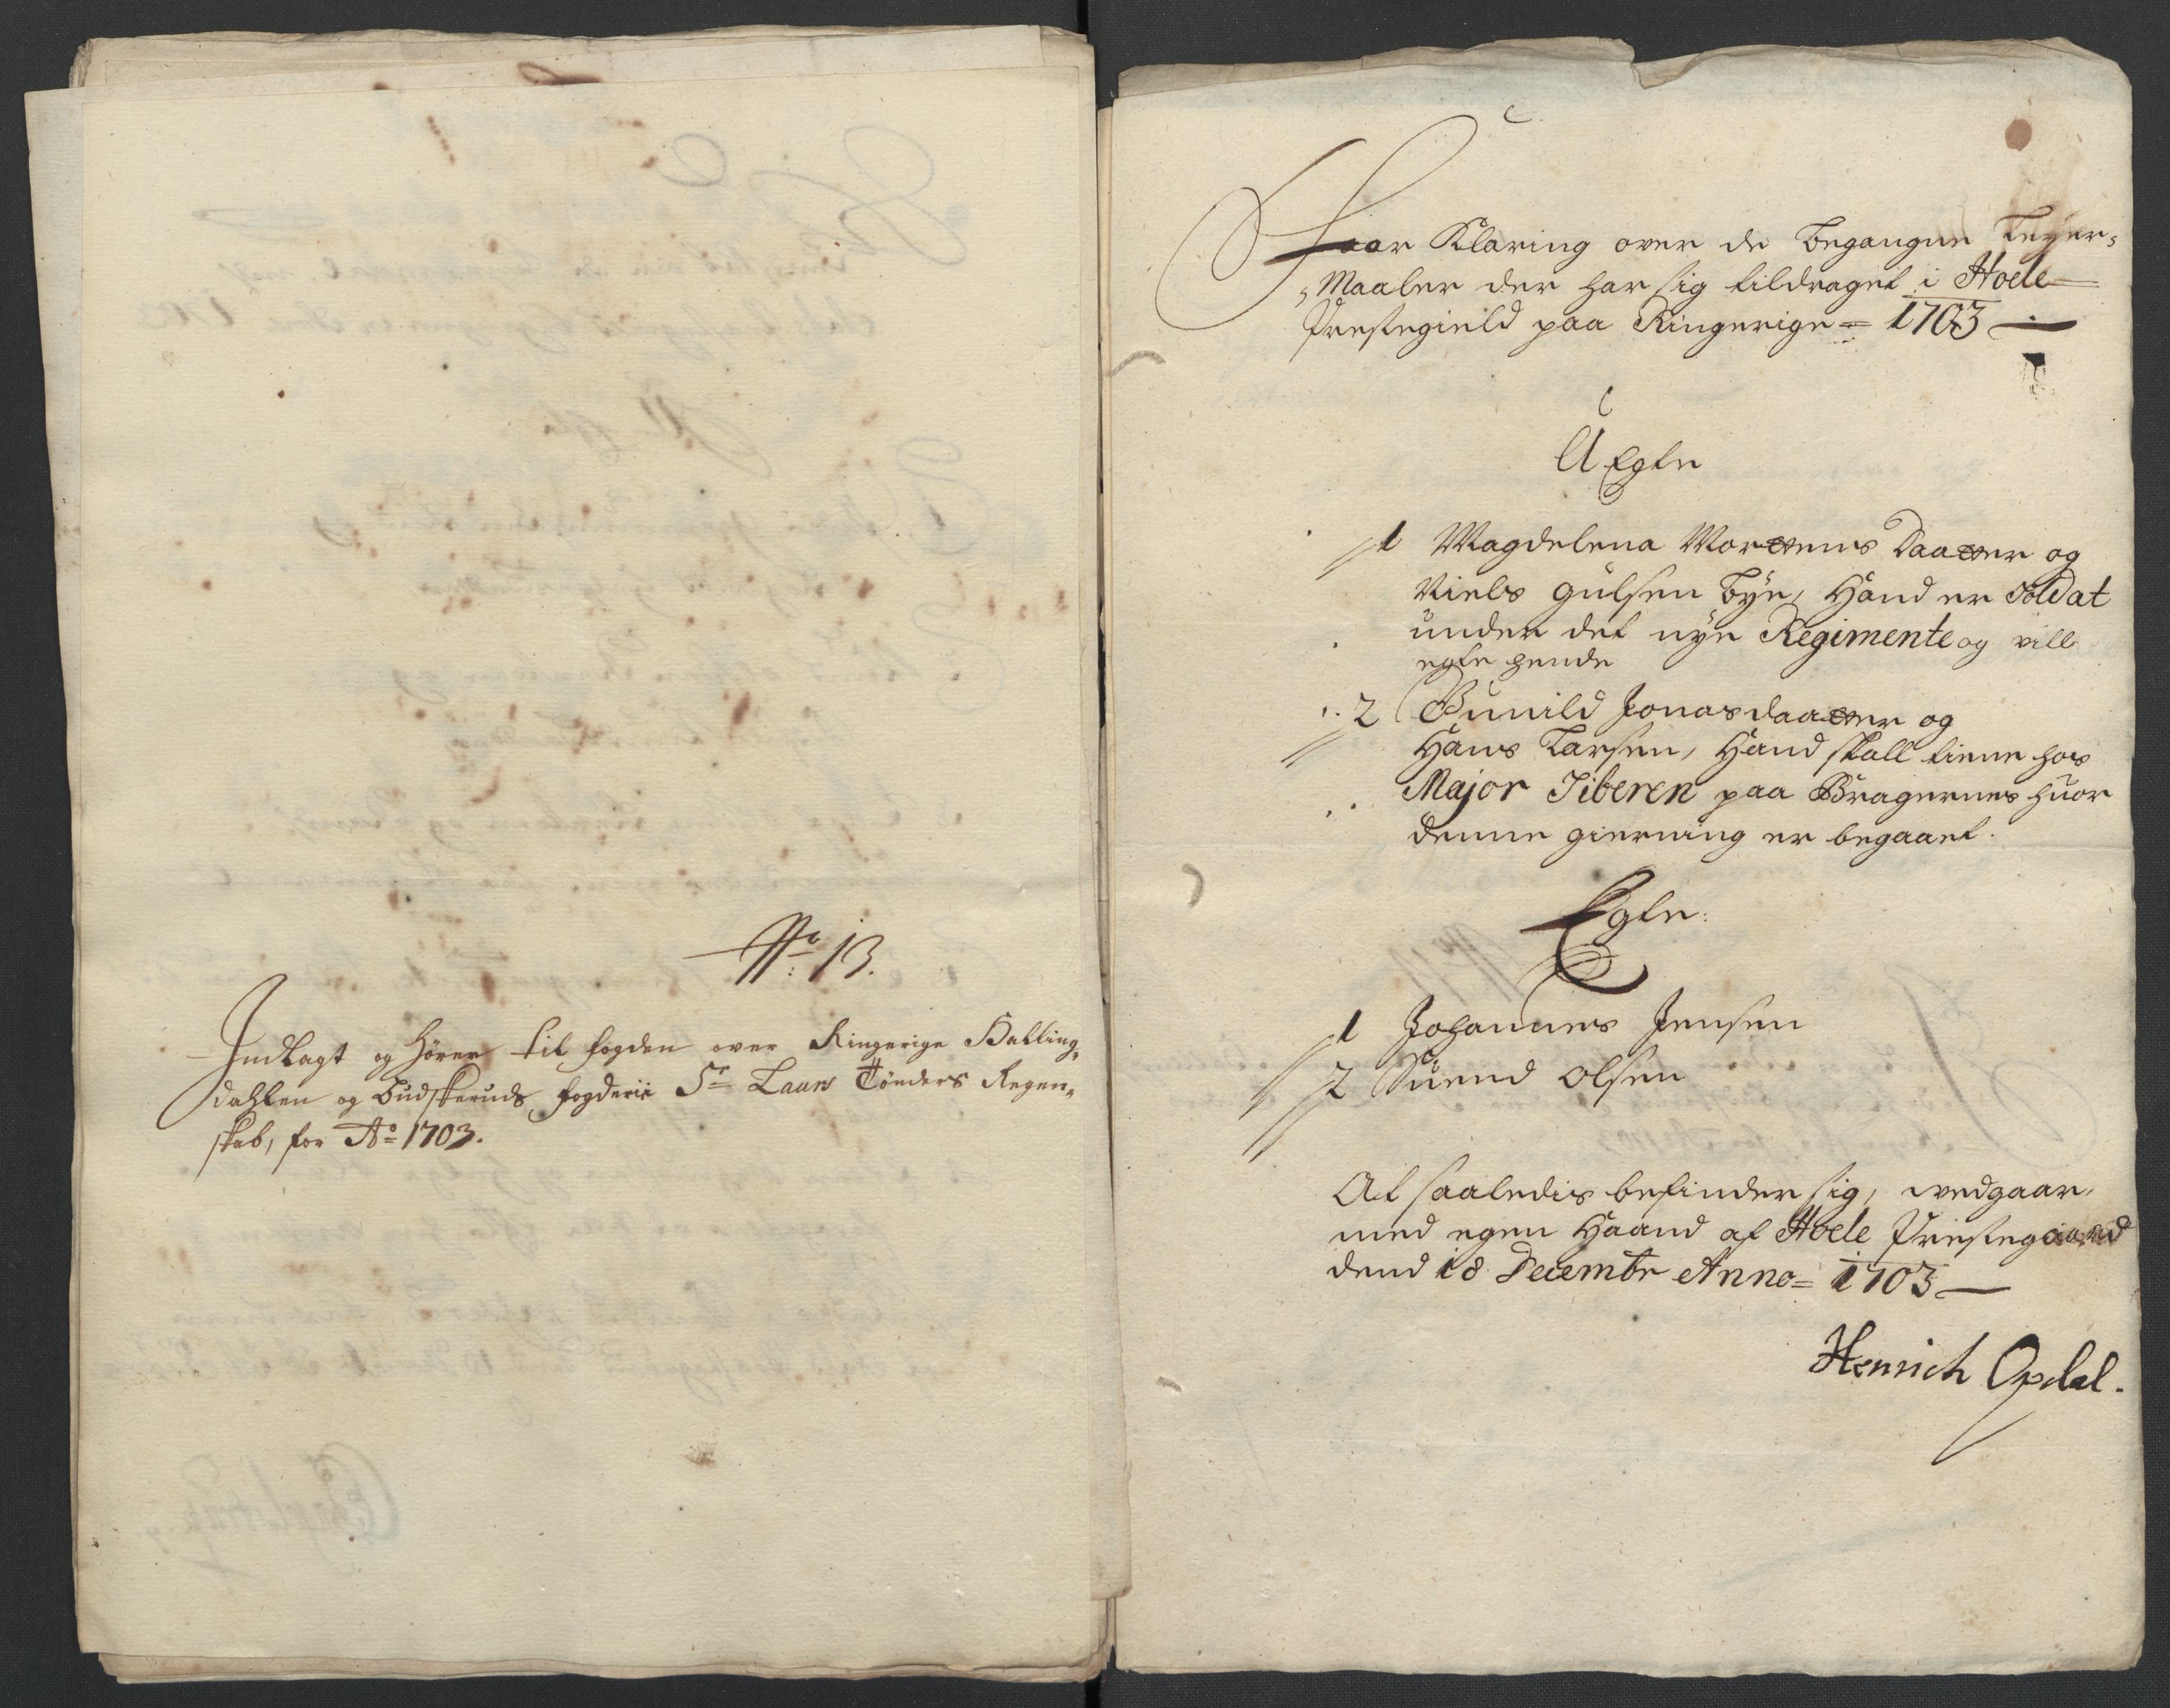 No 13.
Indlagt og hörer til fogden over Ringerige Halling¸
dahlen og Budskeruds fogderie Sr Laurs Tönders Regen¸
skab, for Ao 1703.
Klaring over de Begangne Leyer¸
¸Maaler der har sig tildraget i Hoele
Prestegield paa Ringerige = 1703
U Egte
1 Magdelena Mortens Daatter og
Niels gulsen Bÿe, Hand er Soldat
under det nÿe Regimente og vill
egte hende
2 Gunild Jonasdaatter og
Hans Larsen, Hand skall tiene hos
Major Tiberen paa Bragernes huor
denne gierning er begaaet.
Egte:
1 Johannes Jensen
2 Suend Olsen
At saaledis befinder sig, vedgaar,
med egen Haand af Hoele Prestegaard
dend 18 Decembr Anno = 1703
Henrich Opdal.